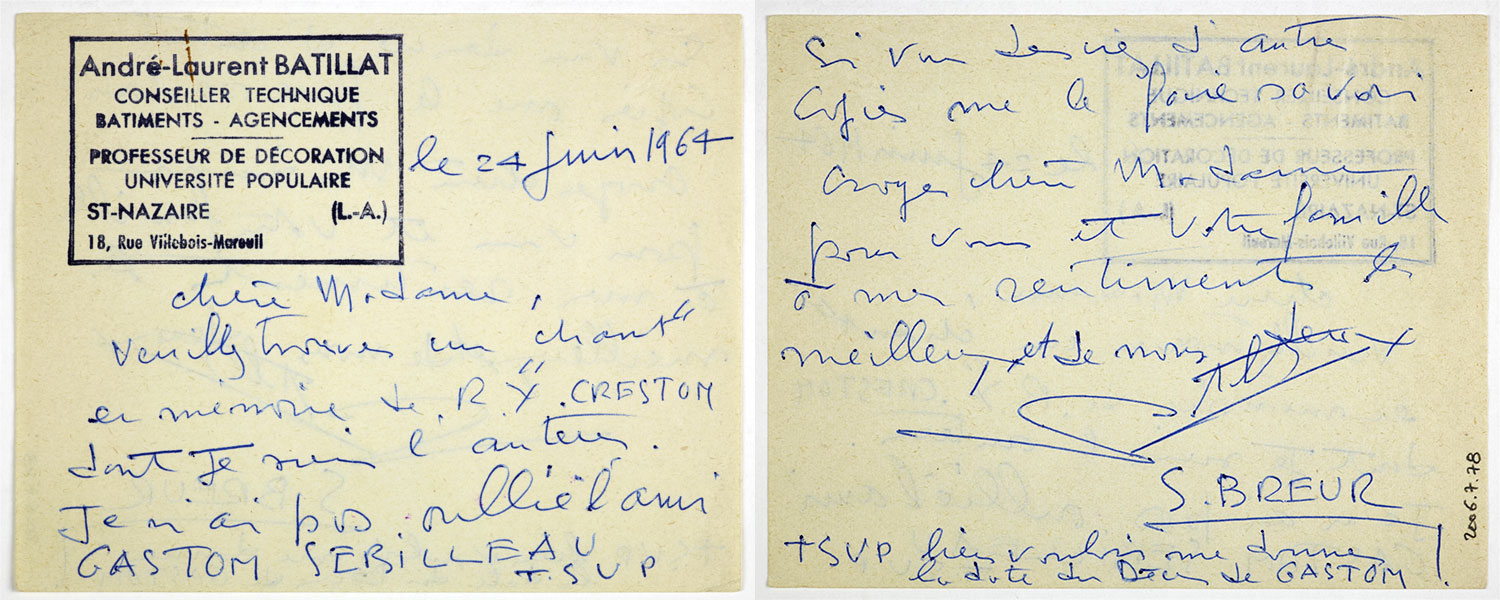 André-Laurent BATILLAT
CONSEILLER TECHNIQUE
BATIMENTS - AGENCEMENTS
PROFESSEUR DE DÉCORATION
UNIVERSITÉ POPULAIRE
ST-NAZAIRE (L.-A.)
18, Rue Villebois-Mareuil
le 24 Juin 1964
chère Madame,
Veuillez trouver un "chant"
en mémoire de R. Y. CRESTOM
dont Je suis l'auteur.
Je n'ai pas oublié l'ami
GASTOM SEBILLEAU
T.SVP
Si vous desirez d'autre
Copies me le faire savoir
Croyez chère Madame
pour vous et votre famille
à mes sentiments les
meilleurs, et de nous deux
S. BREUR
TSVP bien vouloir me donner
la date du Décès de GASTOM !
2006.7.78